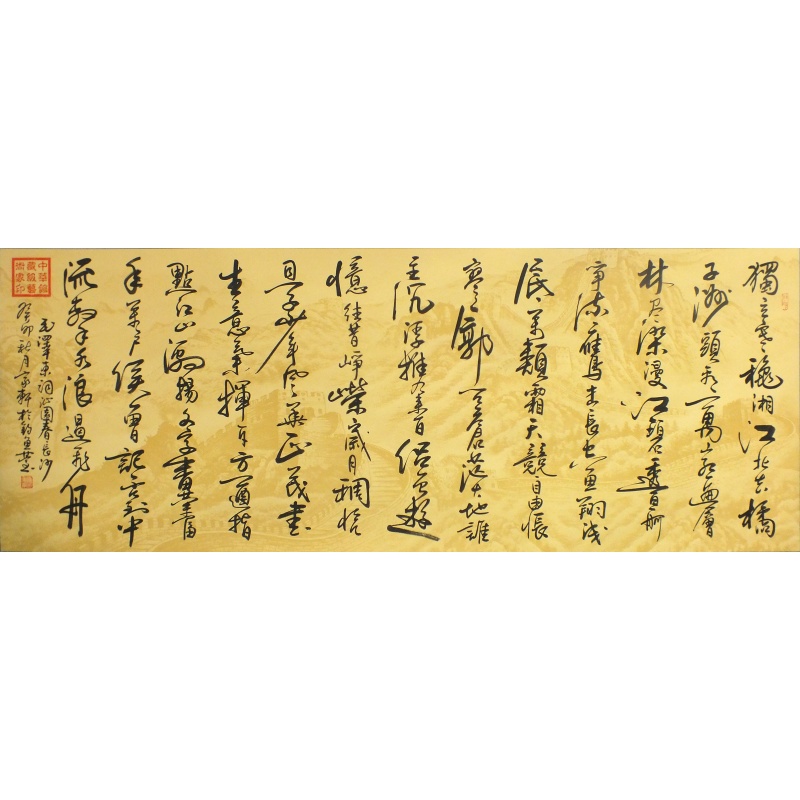 獨立寒穐湘江北去橘
子洲頭看萬山紅遍層
林盡染漫江碧透百舸
爭流鷹擊長空魚翔淺
底萬類霜天競自由悵
寥廓問蒼茫大地誰
主沉浮攜來百侶曾遊
憶往昔崢嶸歲月稠恰
同學少年風華正茂書
生意氣揮斥方遒指
點江山激揚文字糞土當
年萬戶侯曾記否到中
流擊水浪遏飛舟
毛澤東詞沁園春長沙
癸卯秋月京軒於釣魚臺